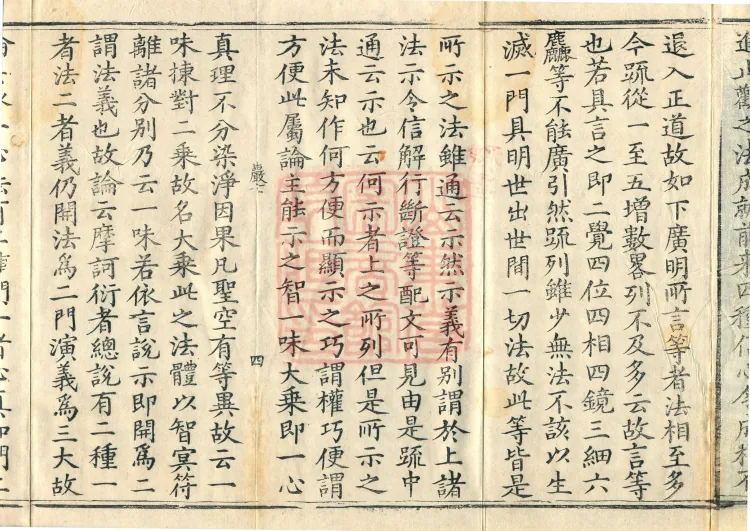 止觀之法前來四種信心令成
退入正道故如下廣明所言等者法相至多
今䟽從一至五增數畧列不及多云故言等
也若具言之即二覺四位四相四鏡三細六
麤等不能廣引然䟽列雖少無法不該以生
滅一門具明世出世間一切法故此等皆是
所示之法雖通云示然示義有別謂於上諸
法示令信解行斷證等配文可見由是䟽中
通云示也云何示者上之所列但是所示之
法未知作何方便而顯示之巧謂權巧便謂
方便此屬論主能示之智一味大乗即一心
嚴七
四
真理不分染淨因果凡聖空有等異故云一
味揀對二乗故名大乗此之法體以智冥符
離諸分別乃云一味若依言說示即開爲二
謂法義也故論云摩訶衍者總說有二種一
者法二者義仍開法爲二門演義爲三大故